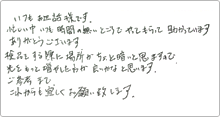 いつもお世話様です。
忙しい中いつも時間の無いところでやってもらって助かっています
ありがとうございます
検品をする際に場所がちょっと暗いと思いますので
光をもっと増やした方が良いかなと思います。
ご参考まで。
これからも宜しくお願い致します。